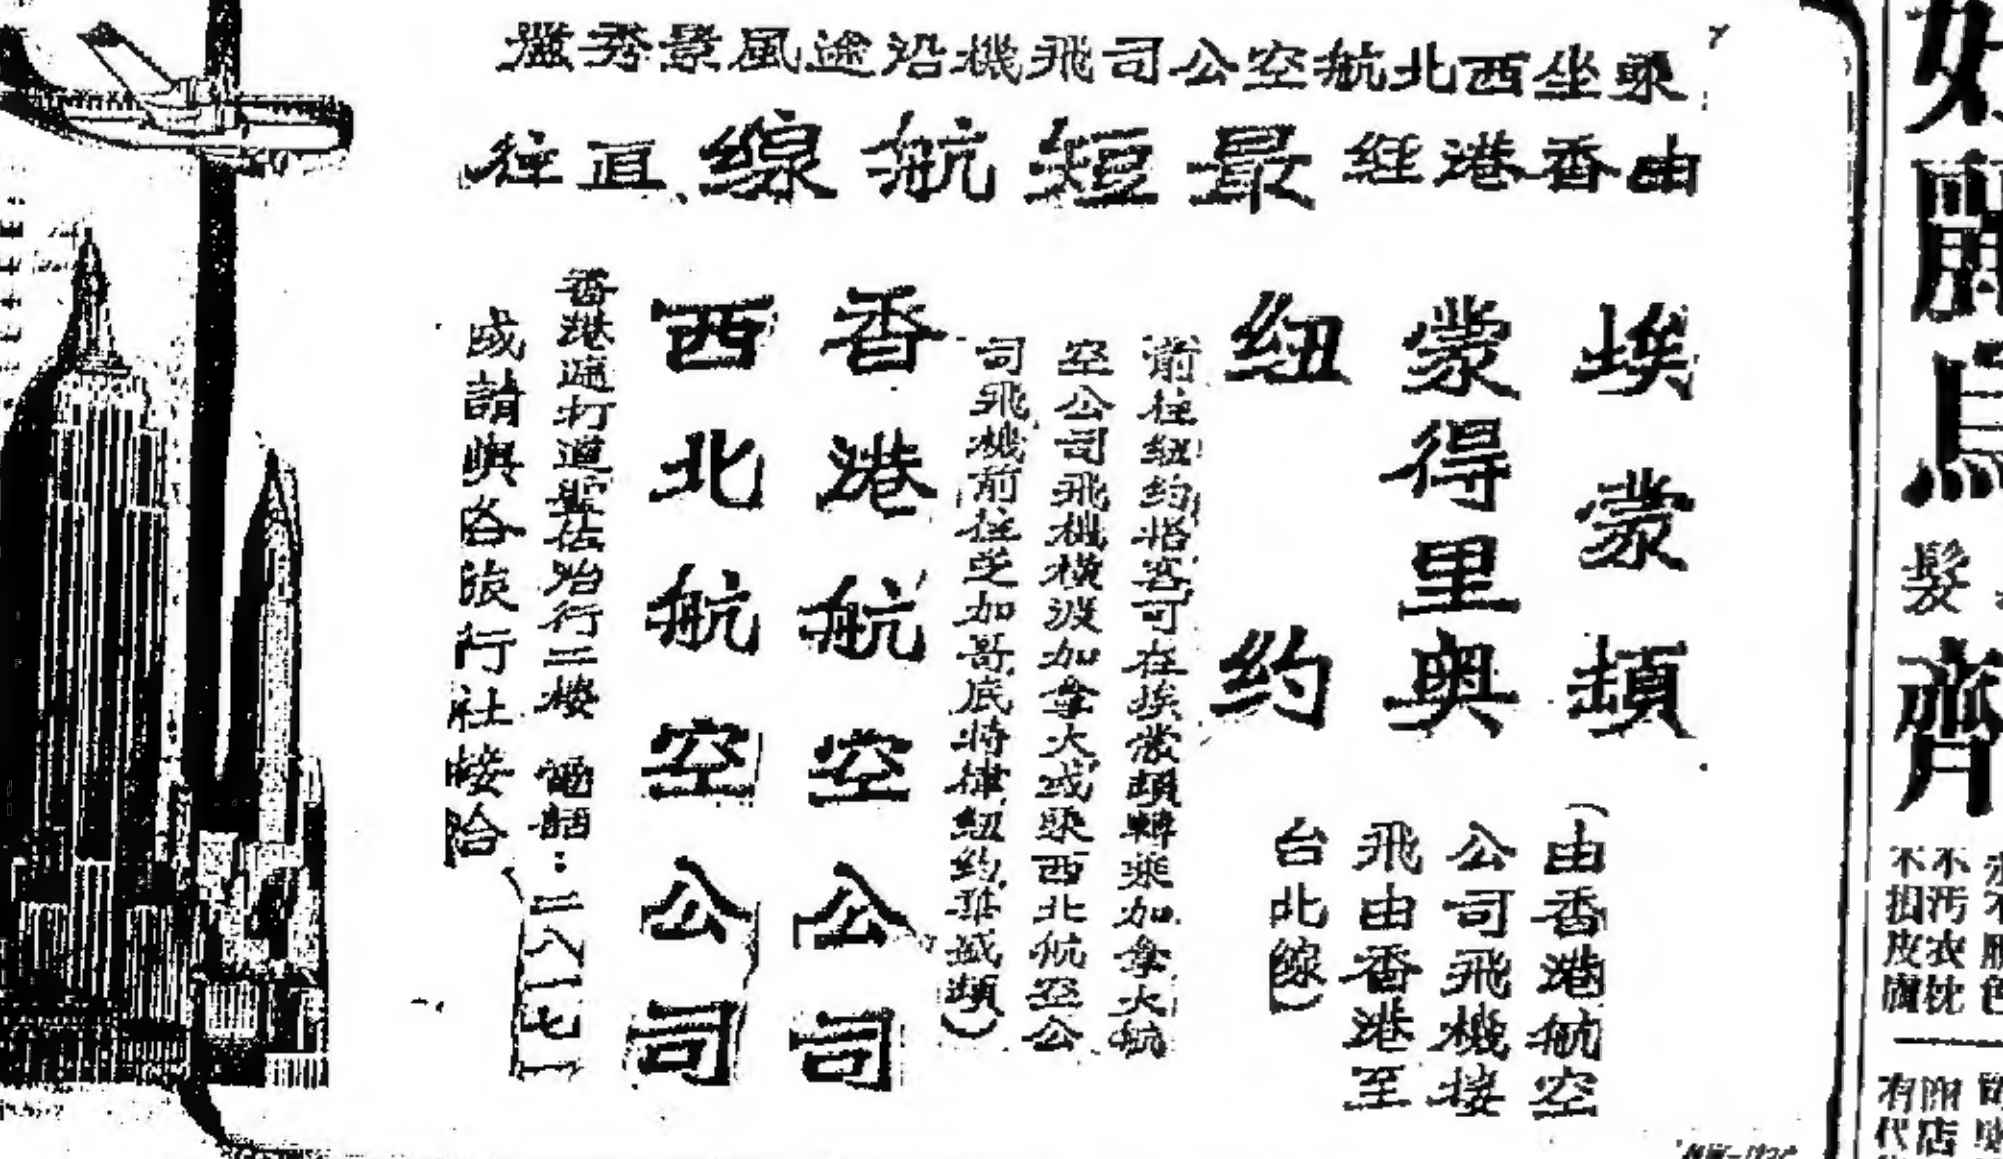 乘坐西北航空公司飛機沿途風景秀溢
由香港經最短航線直往
埃蒙頓
蒙得里奧
紐約
(由香港航空
公司飛機接
飛由香港至
台北線)
前往紐約搭客可在埃蒙頓轉乘加拿大航
空公司飛機橫渡加拿大或乘西北航空公
司飛機前往芝加哥底特律紐約華盛頓)
香港航空公司
西北航空公司
香港遮打道聖佐治行二樓 電話:二八一七一
或請與各旅行社接洽
髮
齊
不汚衣枕
不損皮膚
附店
有代